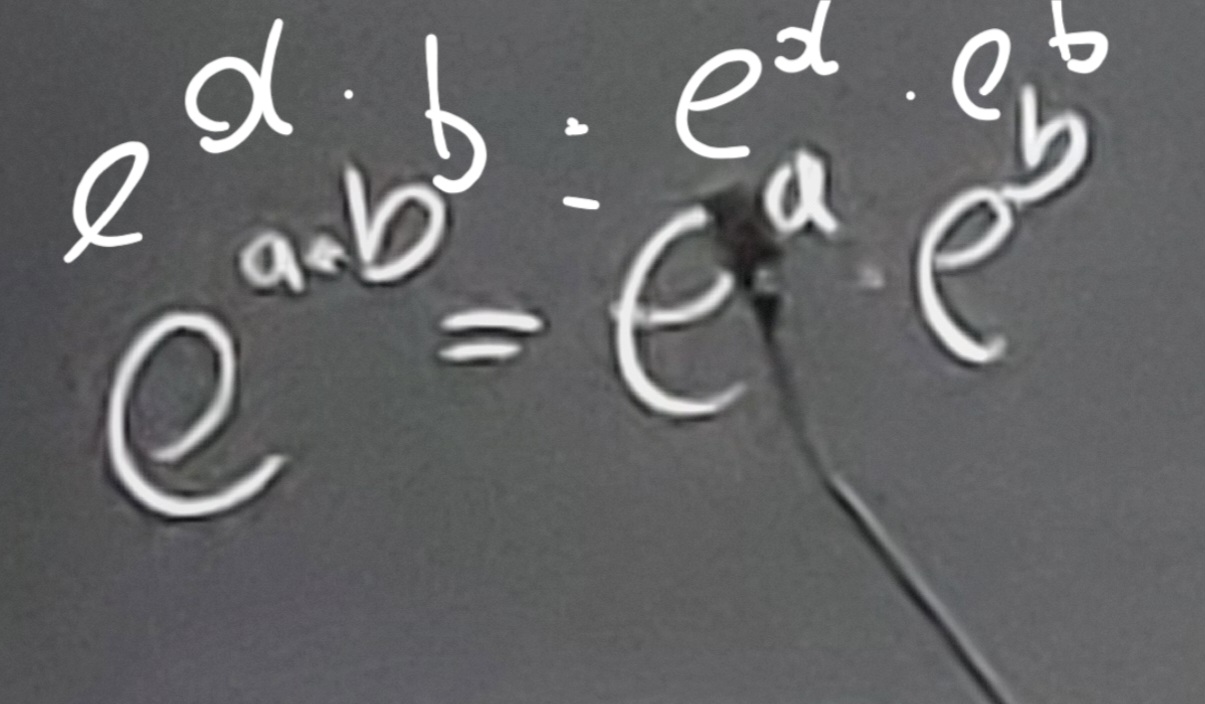 e^{a · b} = e^{a} · e^{b}
e^{a·b} = e^{a} · e^{b}